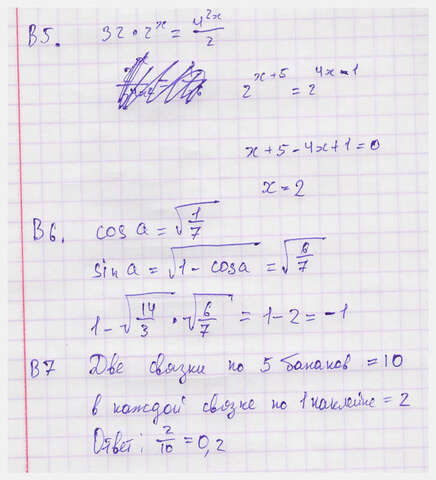 В5. 32 • 2^x = 4^{2x}/2
2^{x+5} = 2^{4x-1}
x+5-4x+1=0
x=2
В6. cos a = √(1/7)
sin a = √(1 - cos a) = √(6/7)
1-√(14/3) • √(6/7) = 1-2 = -1
В7 Две связки по 5 бананов = 10
в каждой связке по 1 наклейке = 2
Ответ: 2/10 = 0,2